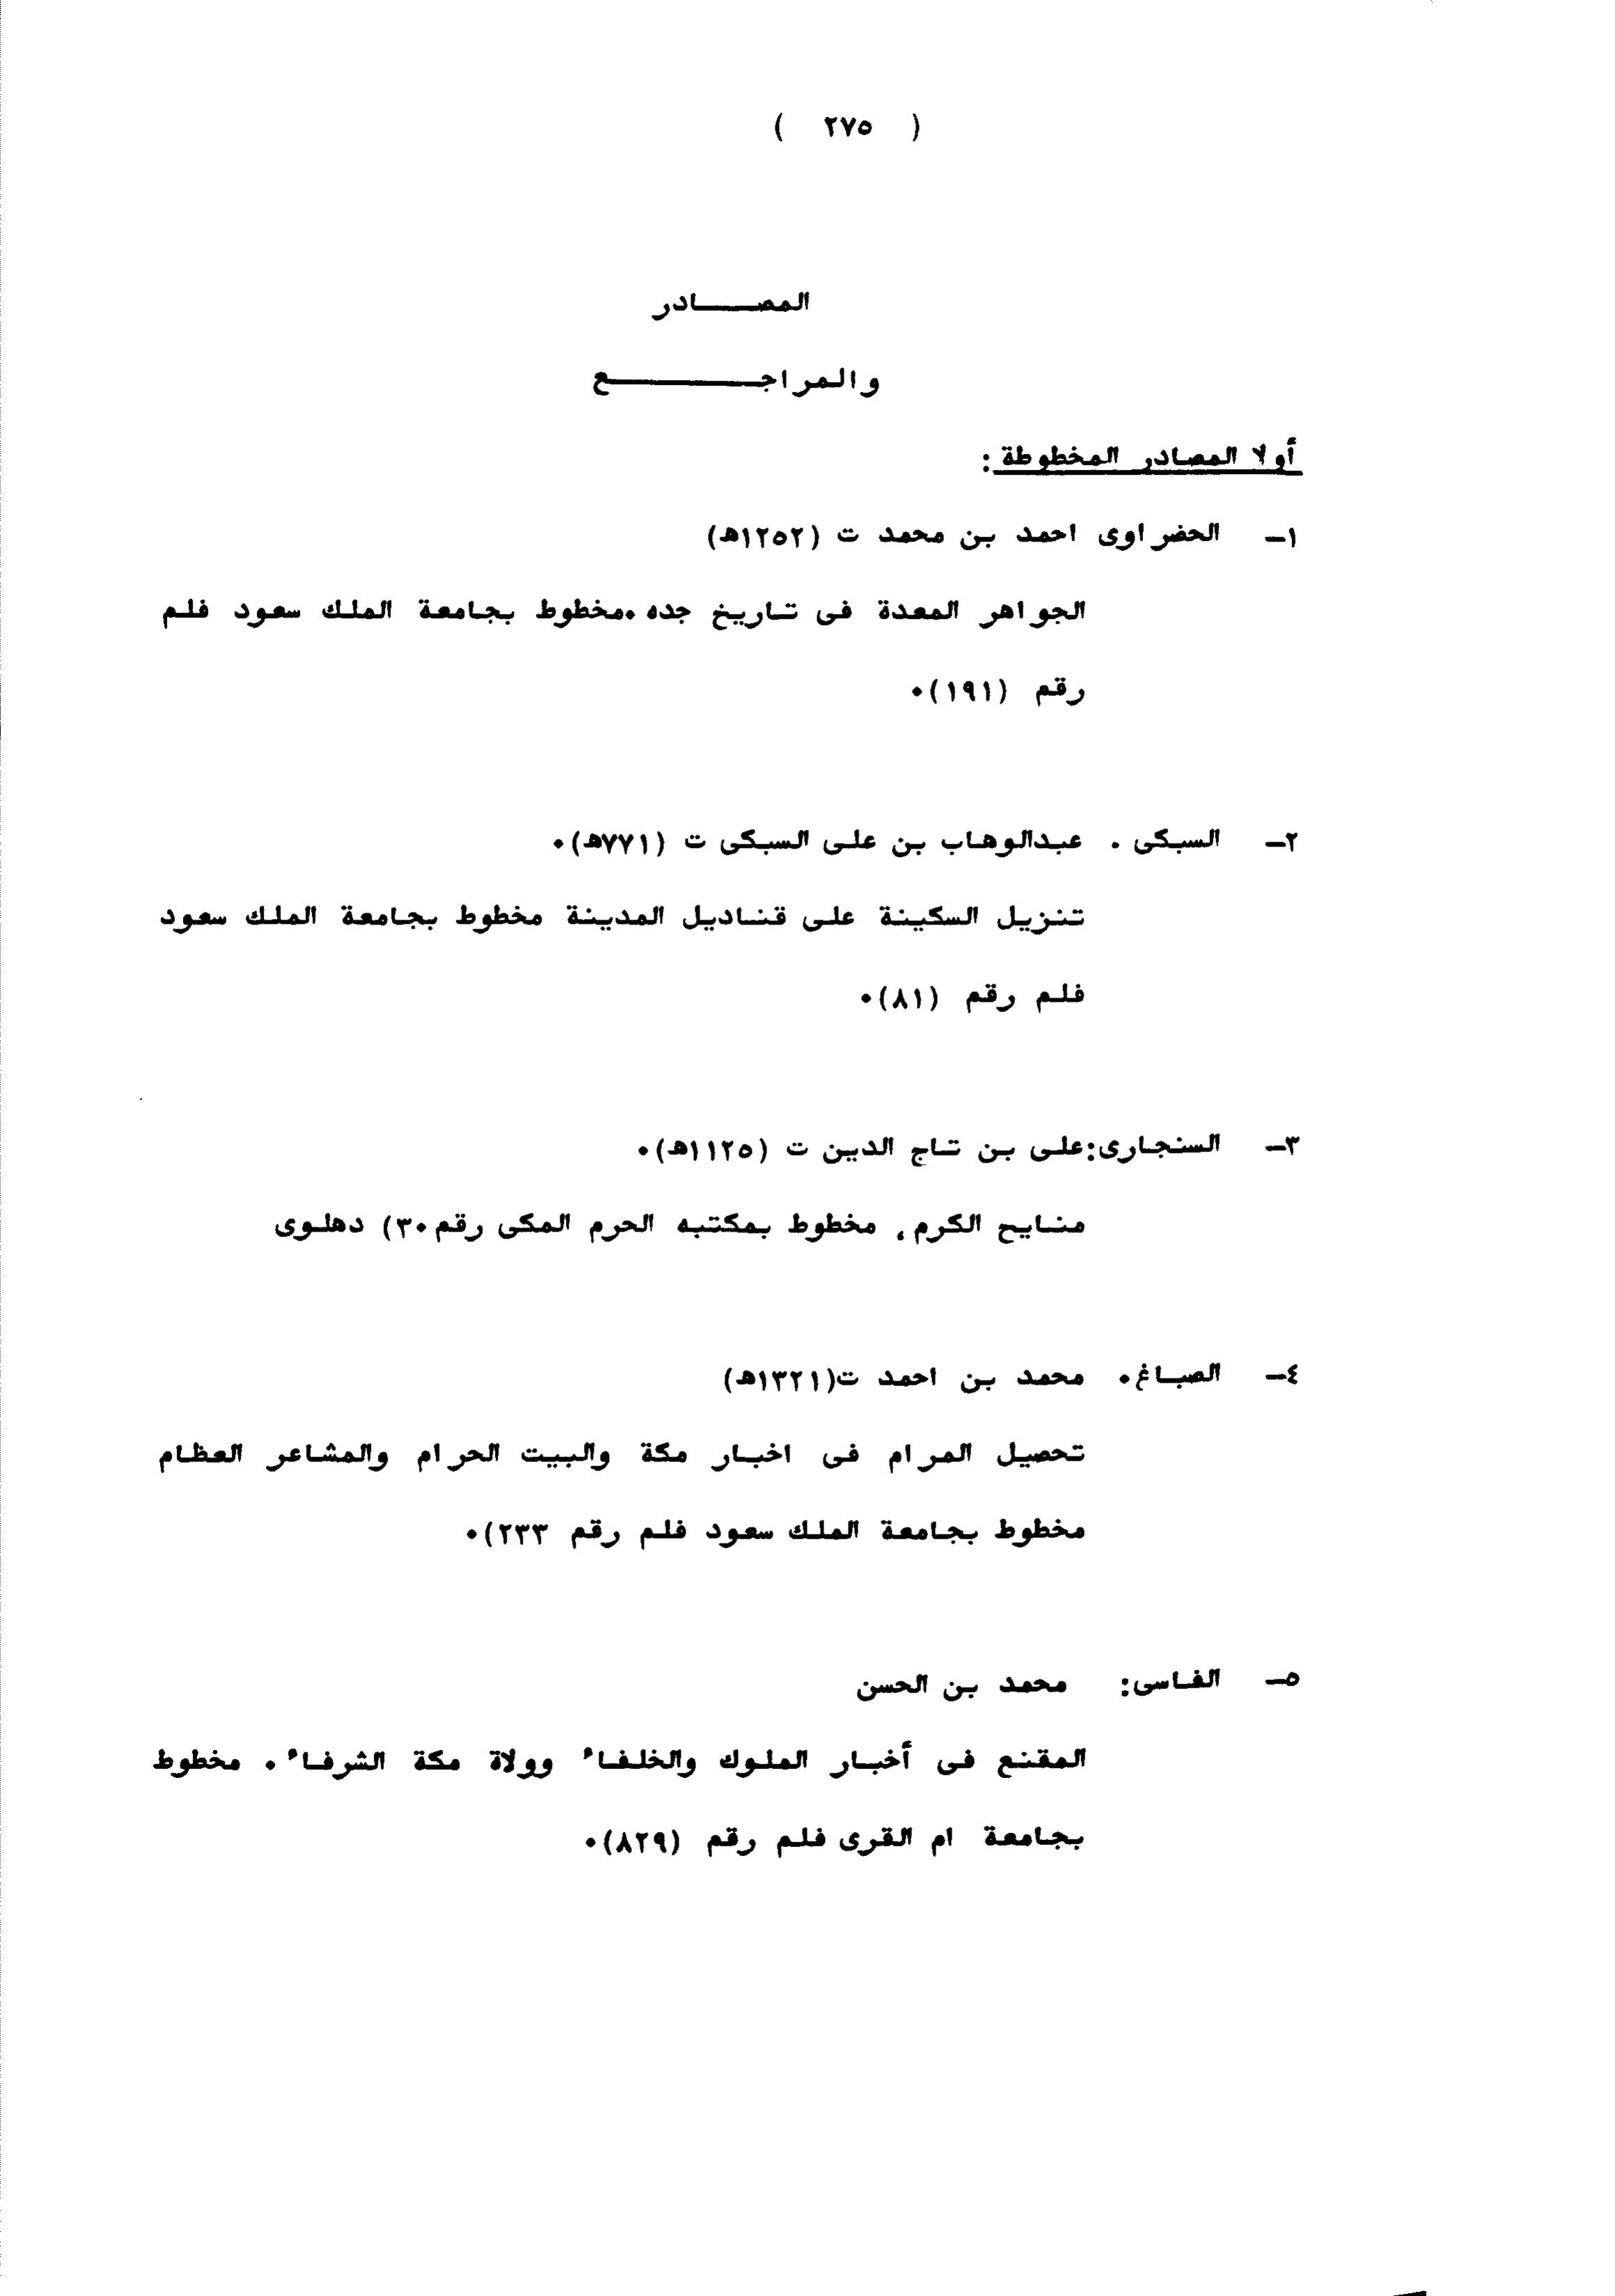 ( ٢٧٥ )
المصـــادر
والمراجـــــــع
أولا المصادر المخطوطة :
١- الحضراوى احمد بن محمد ت (١٢٥٢ه)
الجواهر المعدة فى تاريخ جده ٠مخطوط بجامعة الملك سعود فلم
رقم (١٩١)٠
٢- السبكى . عبدالوهاب بن على السبكى ت (٧٧١ه)٠
تنزيل السكينة على قناديل المدينة مخطوط بجامعة الملك سعود
فلم رقم (٨١)٠
٣- السنجارى:على بن تاج الدين ت (١١٢٥ه)٠
منايح الكرم، مخطوط بمكتبه الحرم المكى رقم٣٠) دهلوى
٤- الصباغ٠ محمد بن احمد ت(١٣٢١ه)
تحصيل المرام فى اخبار مكة والبيت الحرام والمشاعر العظام
مخطوط بجامعة الملك سعود فلم رقم ٢٣٣)٠
٥- الفاسى: محمد بن الحسن
المقنع فى أخبار الملوك والخلفاء وولاة مكة الشرفاء ٠ مخطوط
بجامعة ام القرى فلم رقم (٨٢٩)٠